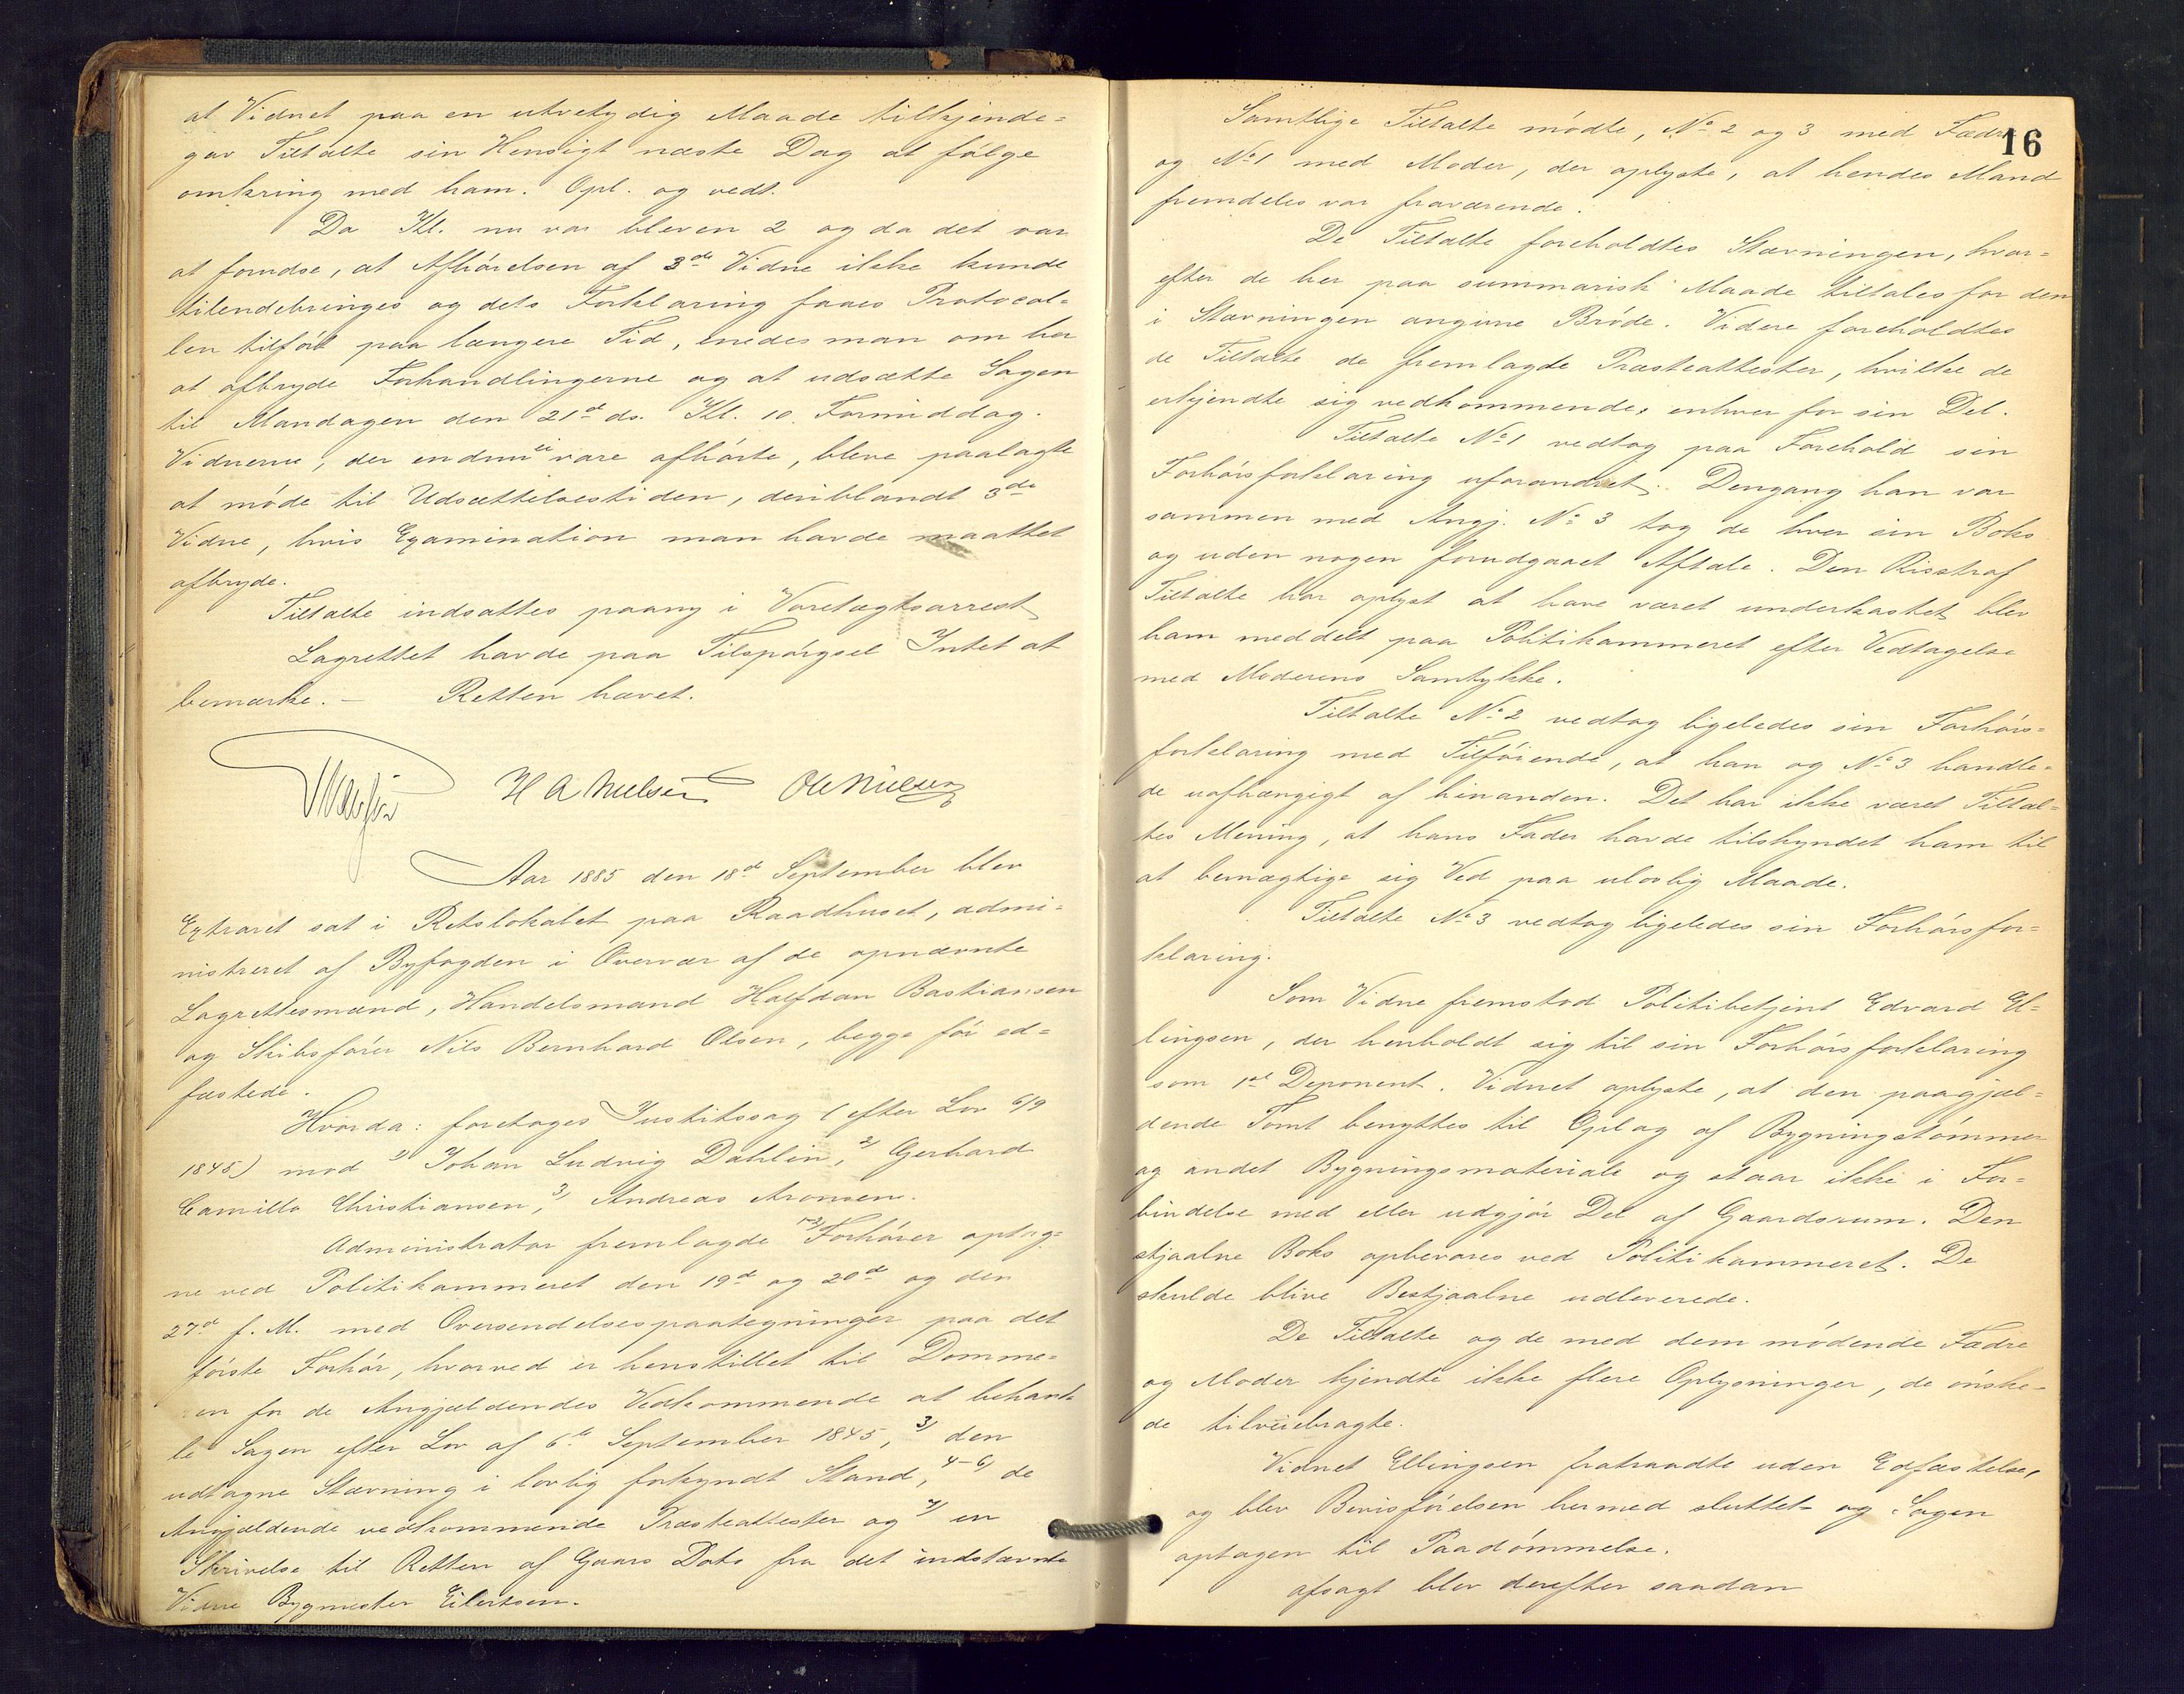 at Vidnet paa en utvetydig Maade tilkjende-
gav Tiltalte sin Hensigt næste Dag at følge
omkring med ham. Opl. og vedt.
Da Kl. nu var bleven 2 og da det var
at forudse, at Afhørelsen af 3de Vidne ikke kunde
tilendebringes og dets Forklaring faaes Protocol-
len tilført paa længere Tid, enedes man om her
at afbryde Forhandlingerne og at udsætte Sagen
til Mandagen den 21de ds. Kl. 10 Formiddag.
Vidnerne, der endnu ei vare afhørte, bleve paalagte
at møde til Udsættelsestiden, deriblandt 3de
Vidne, hvis Examination man havde maattet
afbryde.
Tiltalte indsattes paany i Varetægtsarrest
Lagrettet havde paa Tilspørgsel Intet at
bemærke. — Retten hævet.
H A Nielsen Ole Nielsen
Aar 1885 den 18de September blev
Extraret sat i Retslokalet paa Raadhuset, admi-
nistreret af Byfogden i Overvær af de opnævnte
Lagrettesmænd, Handelsmand Halfdan Bastiansen
og Skibsfører Nils Bernhard Olsen, begge før ed-
fæstede.
Hvorda: foretoges Justitssag (efter Lov 6/9
1845) mod 1) Johan Ludvig Dahlin, 2) Gerhard
Camillo Christiansen, 3) Andreas Aronsen.
Administrator fremlagde 1-2) Forhører optag-
ne ved Politikammeret den 19de og 20de og den
27de f. M. med Oversendelsespaategninger paa det
første Forhør, hvorved er henstillet til Domme-
en for de Angjældendes Vedkommende at behand-
le Sagen efter Lov af 6te September 1845, 3) den
udtagne Stævning i lovlig forkyndt Stand, 4-6) de
Angjældende vedkommende Præsteattester og 7) en
Skrivelse til Retten af Gaars Dato fra det indstævnte
Vidne Bygmester Eilertsen.
16
Samtlige Tiltalte mødte, No 2 og 3 med Fædre
og No 1 med Moder, der oplyste, at hendes Mand
fremdeles var fraværende.
De Tiltalte foreholdtes Stævningen, hvor-
efter de her paa summarisk Maade tiltales for den
i Stævningen angivne Brøde. Videre foreholdtes
de Tiltalte de fremlagde Præsteattester, hvilke de
erkjendte sig vedkommende, enhver for sin Del.
Tiltalte No 1 vedtog paa Forehold sin
Forhørsforklaring uforandret. Dengang han var
sammen med Angj. No 3 tog de hver sin Boks
og uden nogen forudgaaet Aftale. Den Risstraf
Tiltalte har oplyst at have været underkastet blev
ham meddelt paa Politikammeret efter Vedtagelse
med Moderens Samtykke.
Tiltalte No 2 vedtog ligeledes sin Forhørs-
forklaring med Tilføiende, at han og No 3 handle-
de uafhængigt af hinanden. Det har ikke været Tiltal-
tes Mening, at hans Fader havde tilskyndet ham til
at bemægtige sig Ved paa ulovlig Maade.
Tiltalte No 3 vedtog ligeledes sin Forhørsfor-
klaring.
Som Vidne fremstod Politibetjent Edvard El-
lingsen, der henholdt sig til sin Forhørsforklaring
som 1ste Deponent. Vidnet oplyste, at den paagjæl-
dende Tomt benyttes til Oplag af Bygningstømmer
og andet Bygningsmateriale og staar ikke i For-
bindelse med eller udgjør Del af Gaardsrum. Den
stjaalne Boks opbevares ved Politikammeret. De
skulde blive Bestjaalne udleverede.
De Tiltalte og de med dem mødende Fædre
og Moder kjendte ikke flere Oplysninger, de ønske-
de tilveiebragte.
Vidnet Ellingsen fratraadte uden Edfæstelse,
og blev Bevisførelsen hermed sluttet og Sagen
optagen til Paadømmelse.
Afsagt blev derefter saadan